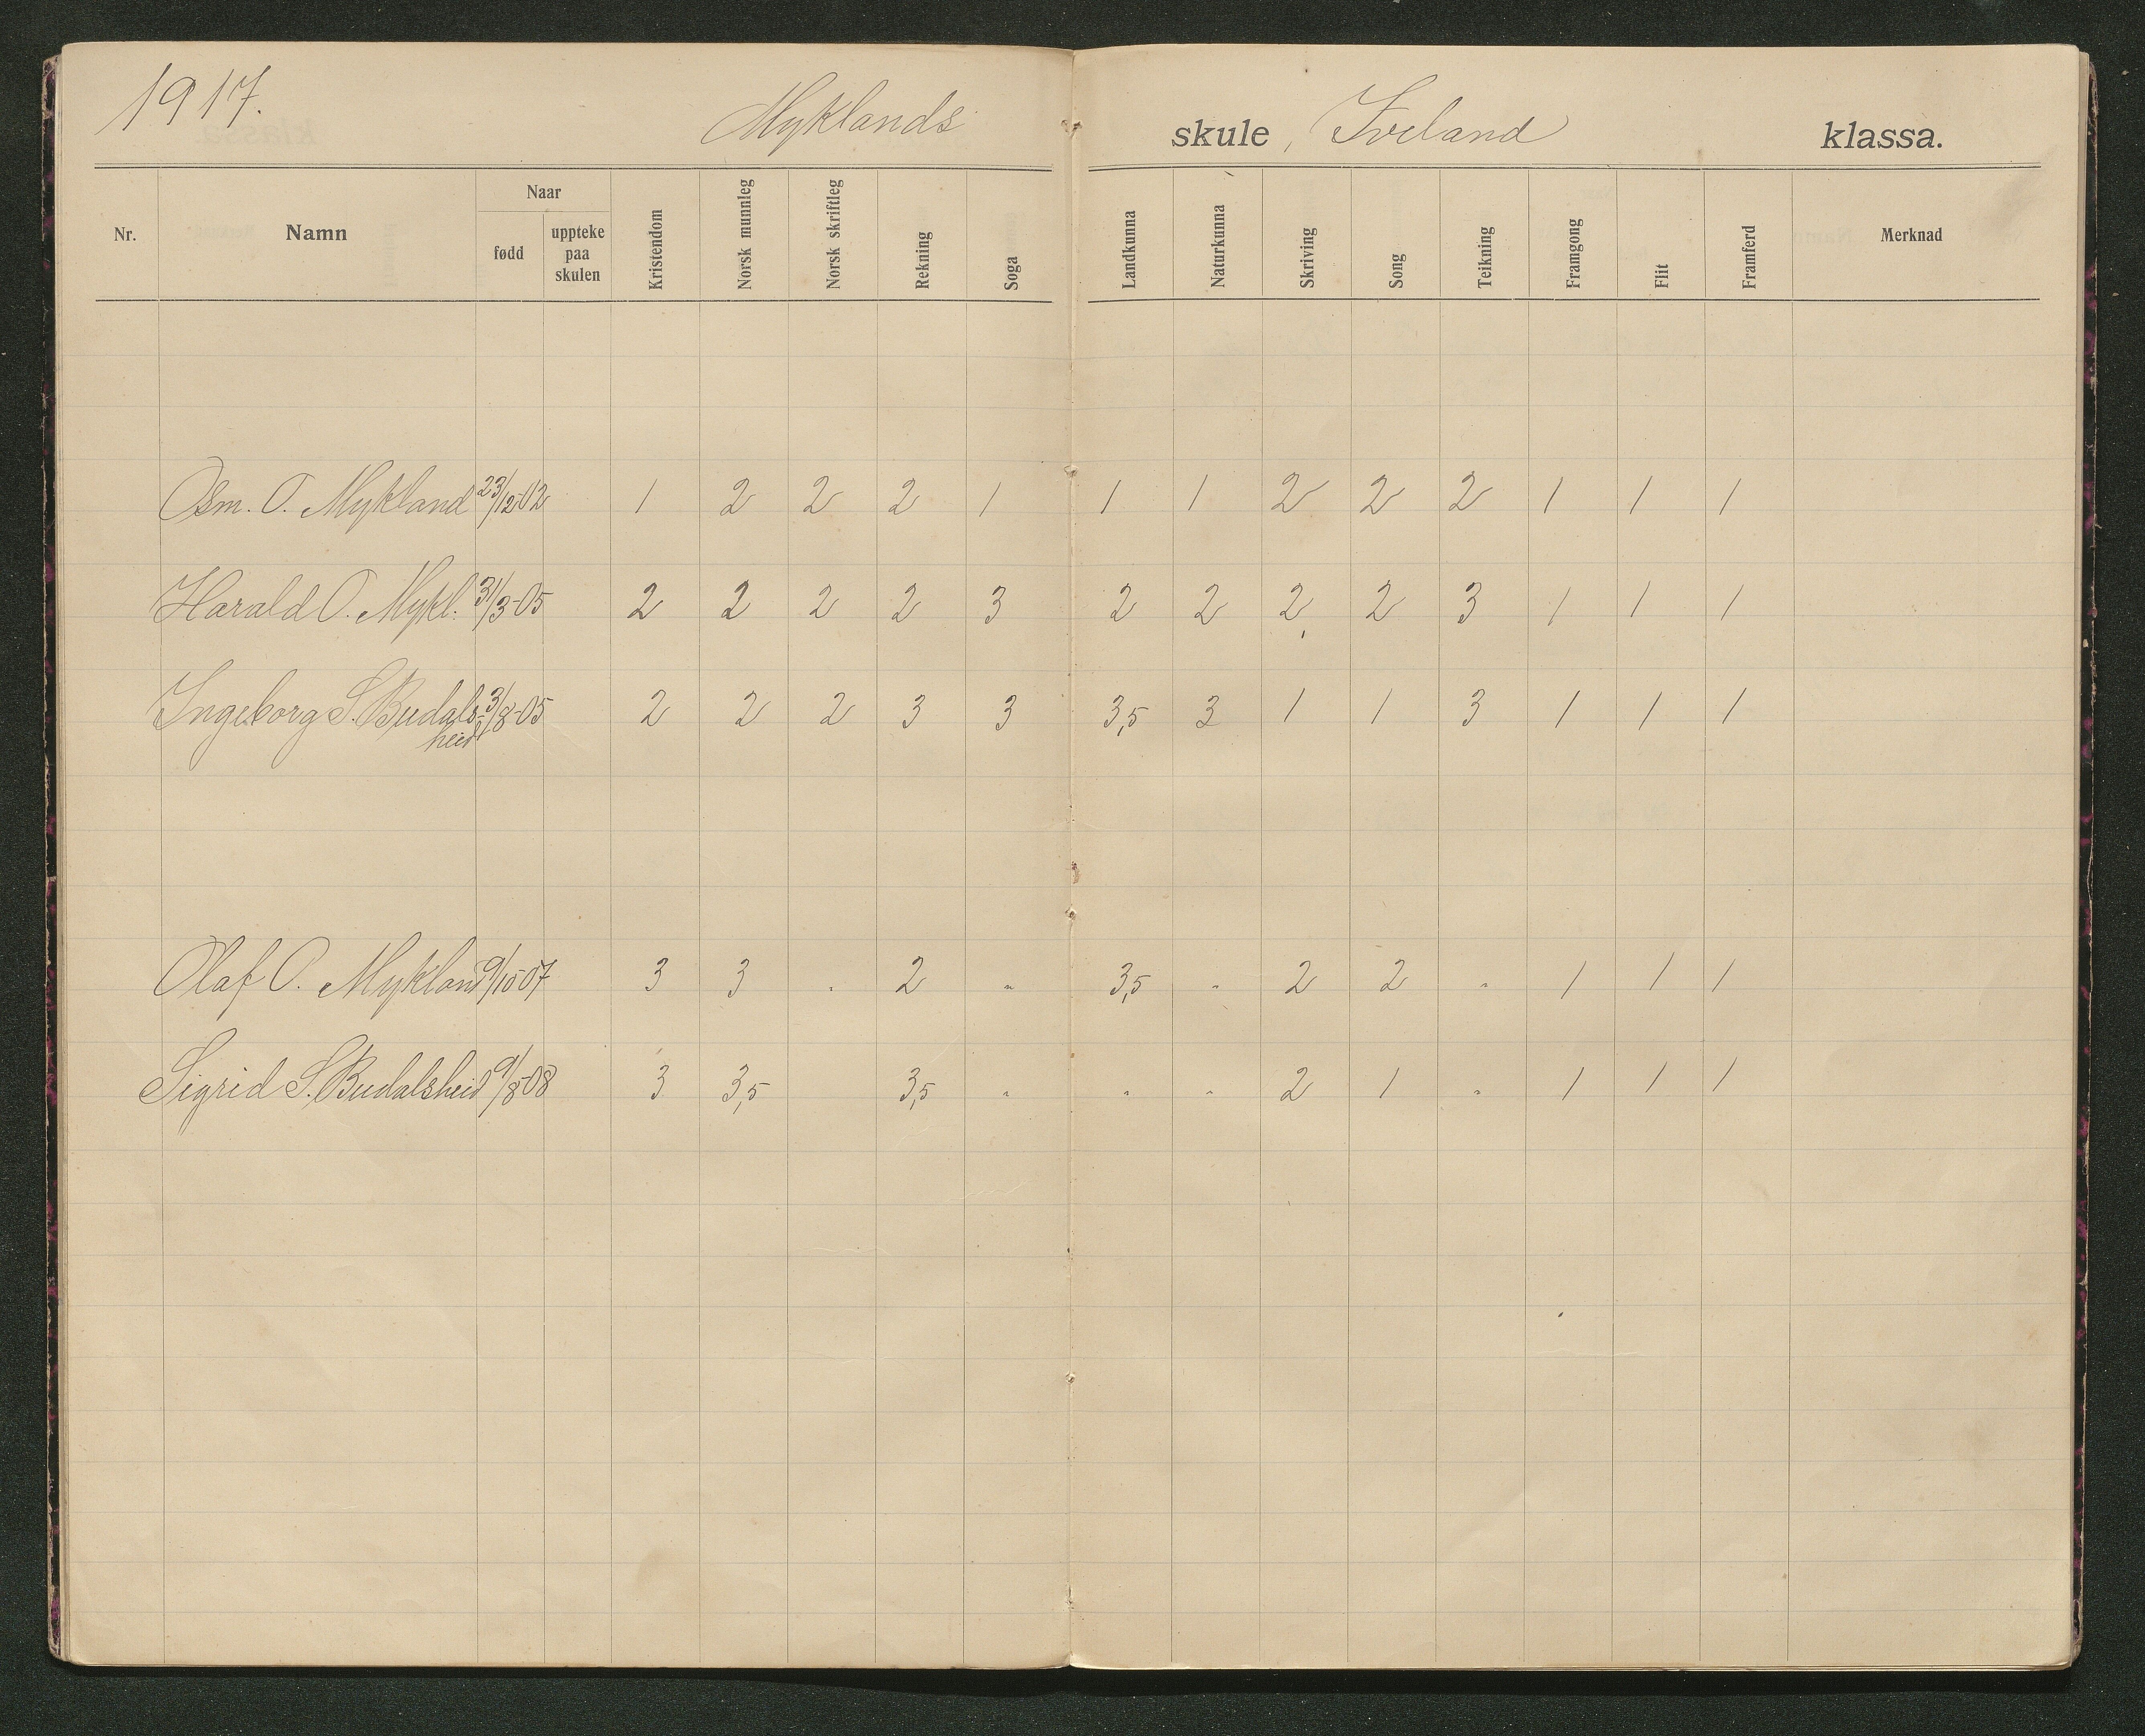 1917.
Myklands skule, Iveland klassa.
Nr. Namn Naar fødd uppteke paa skulen Kristendom Norsk munnleg Norsk skriftleg Rekning Soga Landkunna Naturkunna Skriving Song Teikning Framgong Flit Framferd Merknad
Osm. O. Mykland 23/12-02 1 2 2 2 1 1 1 2 2 2 1 1 1
Harald O. Mykl. 31/3-05 2 2 2 2 3 2 2 2 2 3 1 1 1
Ingeborg S. Budals- 3/8-05 2 2 2 3 3 3,5 3 1 1 3 1 1 1
heid
Olaf O. Mykland 9/10 07 3 3 " 2 " 3,5 " 2 2 " 1 1 1
Sigrid S. Budalsheid 9/8-08 3 3,5 3,5 " " " 2 1 " 1 1 1